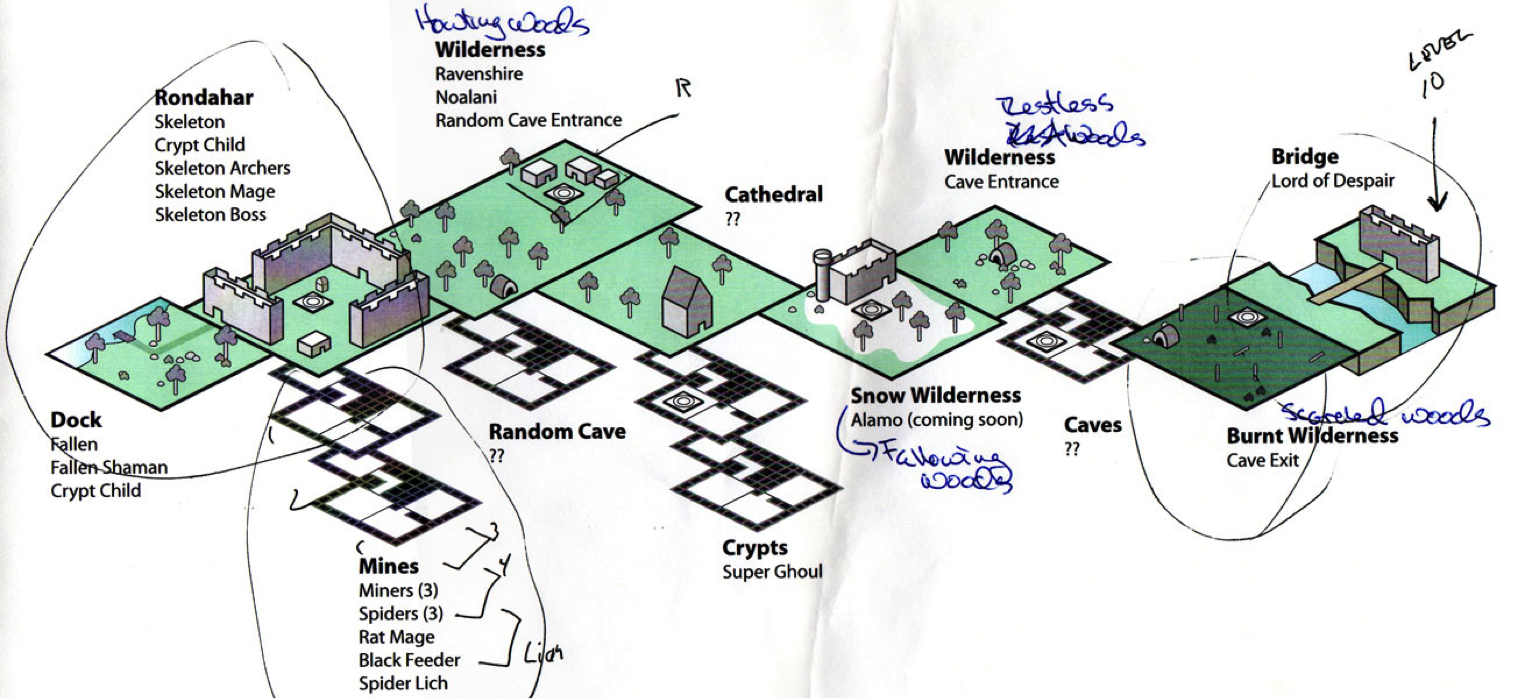 Howling woods
Wilderness
Ravenshire
Noalani
Random Cave Entrance
R
Rondahar
Skeleton
Crypt Child
Skeleton Archers
Skeleton Mage
Skeleton Boss
Cathedral
??
Restless
woods
Wilderness
Cave Entrance
LEVEL
10
Bridge
Lord of Despair
Dock
Fallen
Fallen Shaman
Crypt Child
1
2
Random Cave
??
Snow Wilderness
Alamo (coming soon)
woods
Caves
??
woods
Burnt Wilderness
Cave Exit
Crypts
Super Ghoul
3
4
Mines
Miners (3)
Spiders (3)
Rat Mage
Black Feeder
Spider Lich
Lich